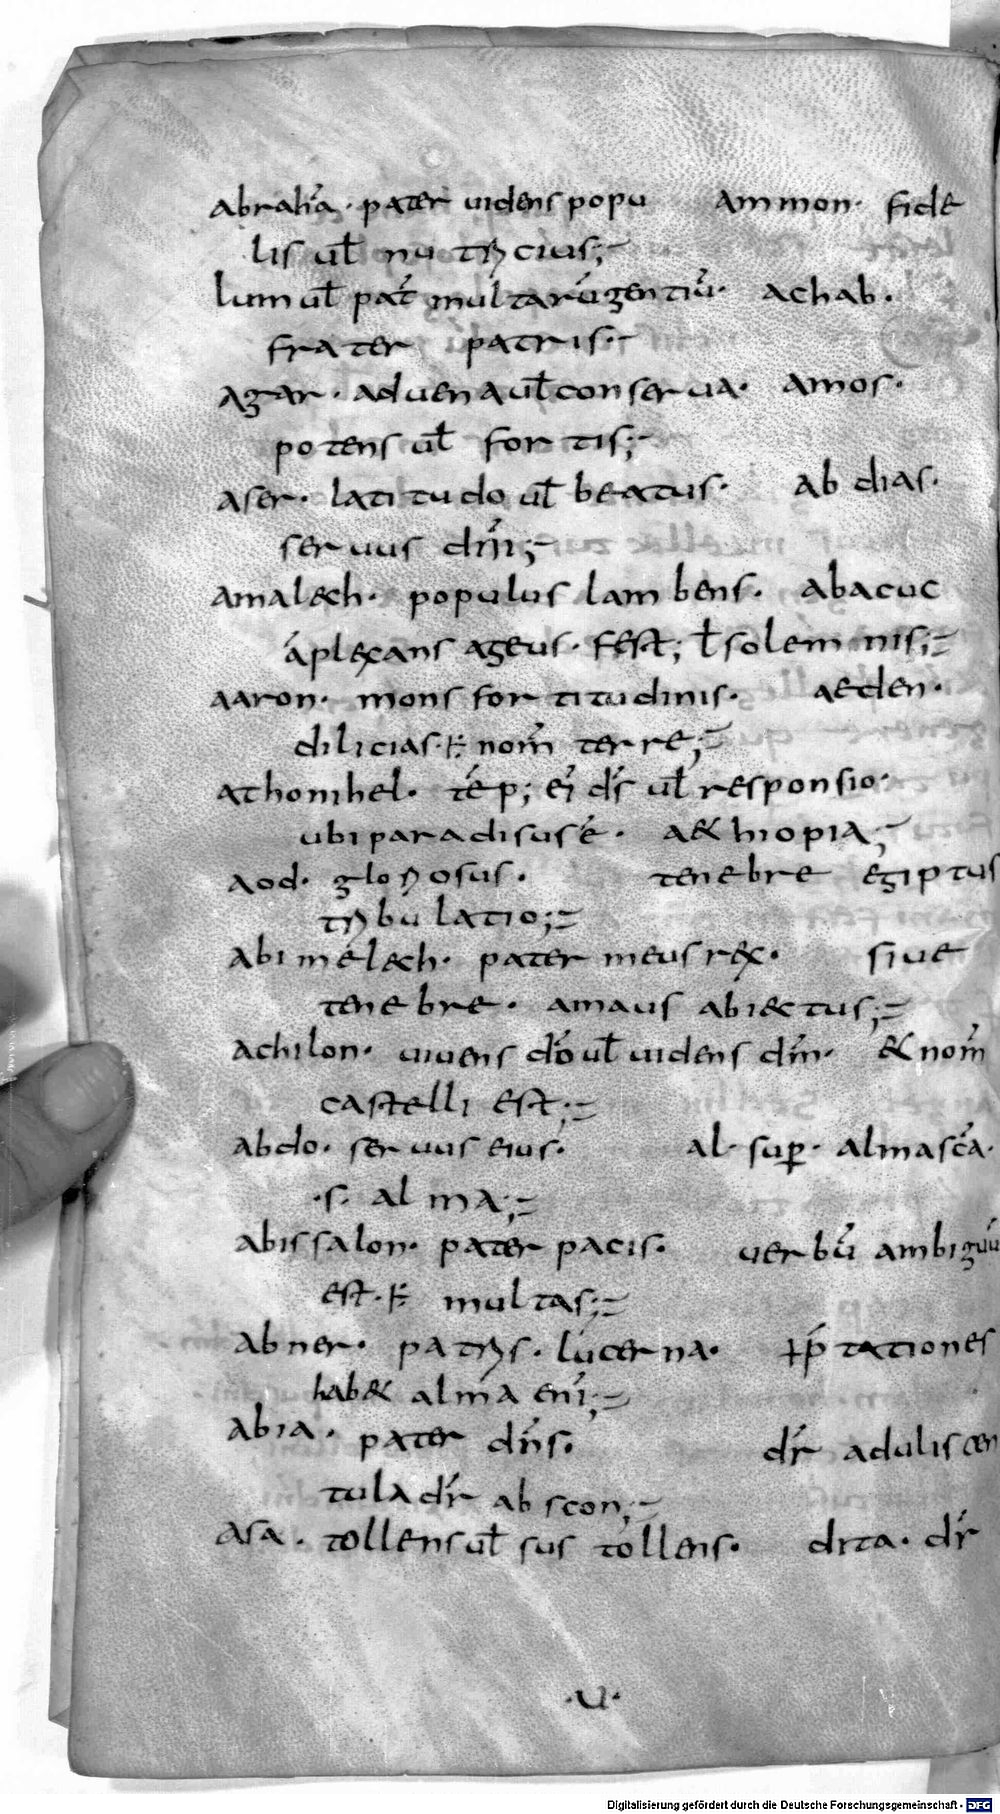 abrahā · pater uidens popu ammon · fide
lis ul̄ nutricius;
lum ul̄ pat̄ multarū gentiū · achab ·
frater patris ·
agar · aduena ul̄ conserua · amos ·
potens ul̄ fortis;
aser · latitudo ul̄ beatus · abdias ·
seruus dn̄i;
amalech · populus lambens · abacuc
āplexans ageus · fest; ł solemnis;
aaron · mons fortitudinis · aeden ·
dilicias · nom̄ terre;
athonihel · ei; dī ul̄ responsio ·
ubi paradisus ē · a&hiopia;
aod · gloriosus · tenebre egiptus
tribulatio;
abimelech · pater meus rex · siue
tenebre · amaus abi&tus;
achilon · uiuens dō ul̄ uidens dm̄ · & nom̄
castelli est;
abdo · seruus eius · al · sup̱ · almascā ·
· s · alma;
abissalon · pater pacis · uerbū ambiguū
est · multas;
abner · patris · lucerna · tationes
hab& alma eni;
abia · pater dn̄s · dr̄ aduliscen
tula dr̄ abscon;
asa · tollens ul̄ sustollens · dita · dr̄
· u ·
Digitalisierung gefördert durch die Deutsche Forschungsgemeinschaft - DFG